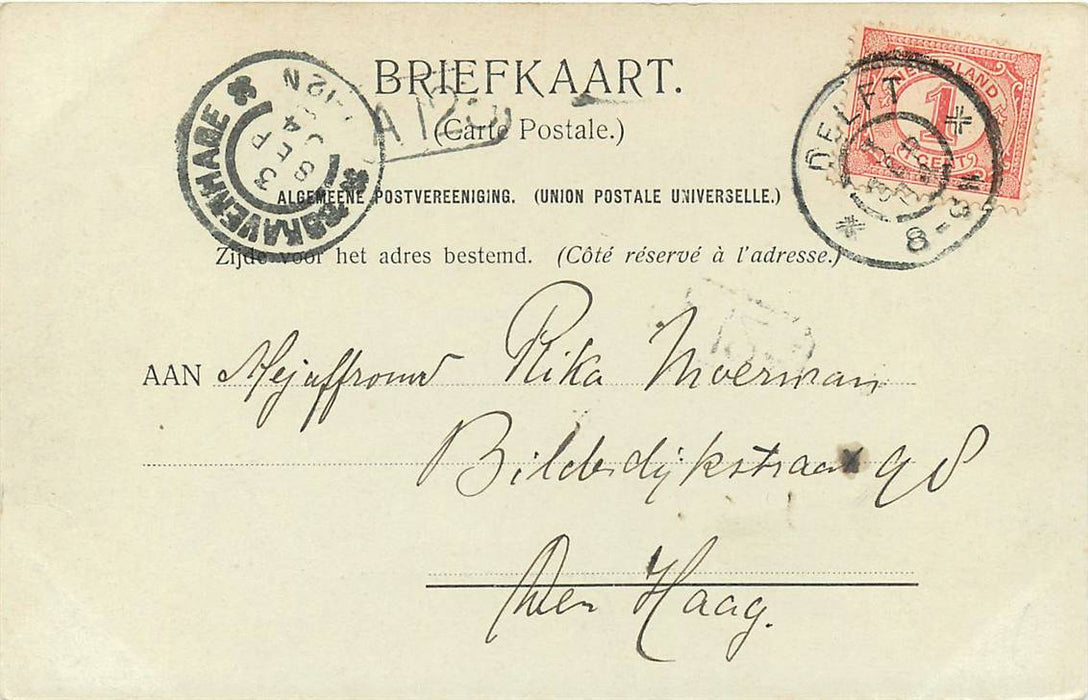 BRIEFKAART.
(Carte Postale.)
ALGEMEENE POSTVEREENIGING. (UNION POSTALE UNIVERSELLE.)
Zijde voor het adres bestemd. (Côté réservé à l'adresse.)
'SGRAVENHAGE
3 SEP
12N
DELFT
8-9 N
NEDERLAND
1
1 CENT
AAN Mejuffrouw Rika Moerman
Bilderdijkstraat 98
Den Haag.